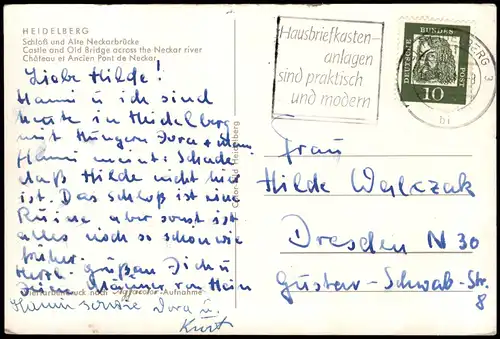 HEIDELBERG
Schloß und Alte Neckarbrücke
Castle and Old Bridge across the Neckar river
Château et Ancien Pont de Neckar
Liebe Hilde!
Hanni u. ich sind
heute in Heidelberg
mit Jürgen Dora +
Hanni meint: Schade
daß Hilde nicht hier
ist. Das Schloß ist eine
Ruine aber sonst ist
alles noch so schön wie
früher.
Herzl. Grüßen Dich u.
Deine Männer von Heim
Hanni sowie Dora u.
Kurt
Vierfarbendruck nach Agfacolor-Aufnahme
Heidelberg
Hausbriefkasten-
anlagen
sind praktisch
und modern
BERG 3
bi
DEUTSCHE BUNDESPOST
10
Frau
Hilde Walczak
Dresden N 30
Gustav-Schwab-Str.
8